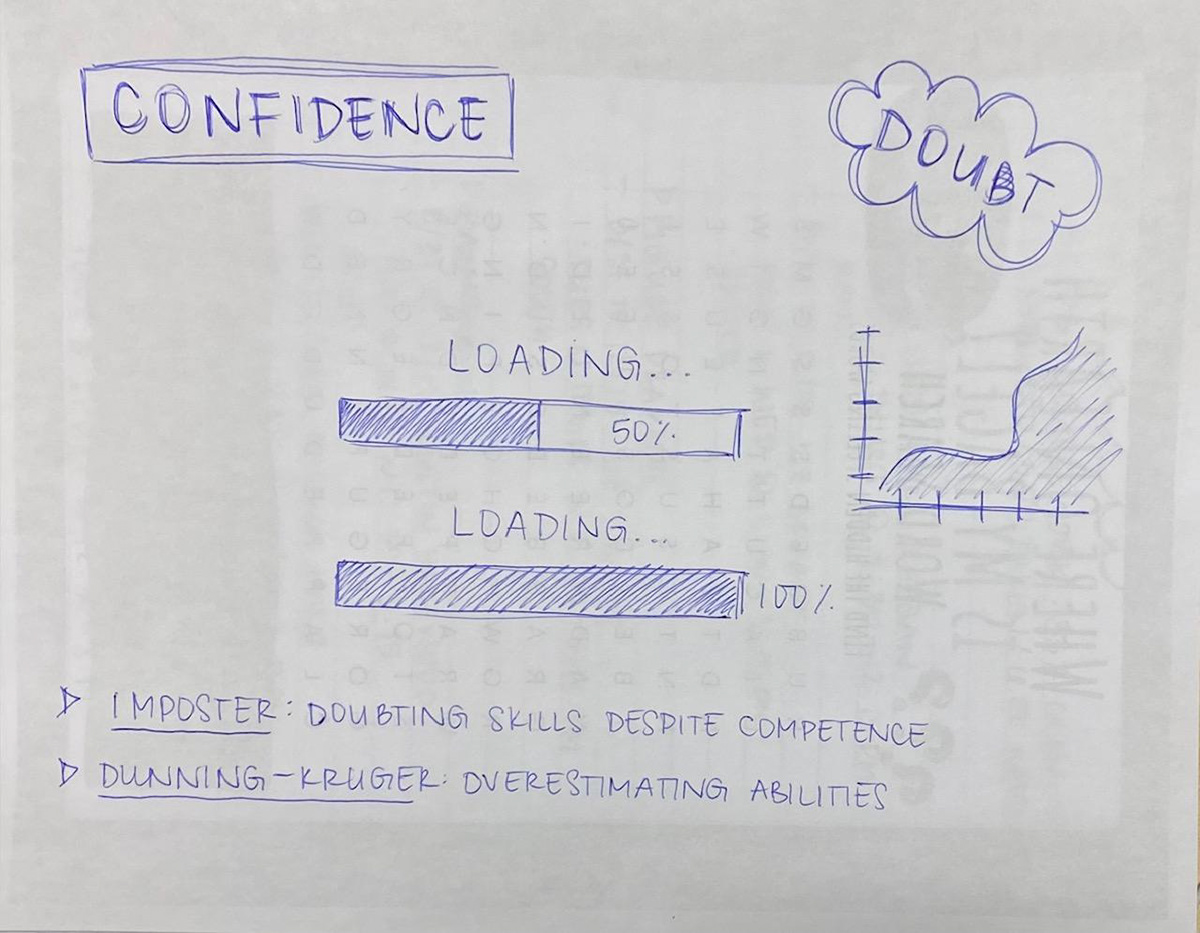 CONFIDENCE
DOUBT
LOADING...
50%
LOADING...
100%
IMPOSTER: DOUBTING SKILLS DESPITE COMPETENCE
DUNNING-KRUGER: OVERESTIMATING ABILITIES